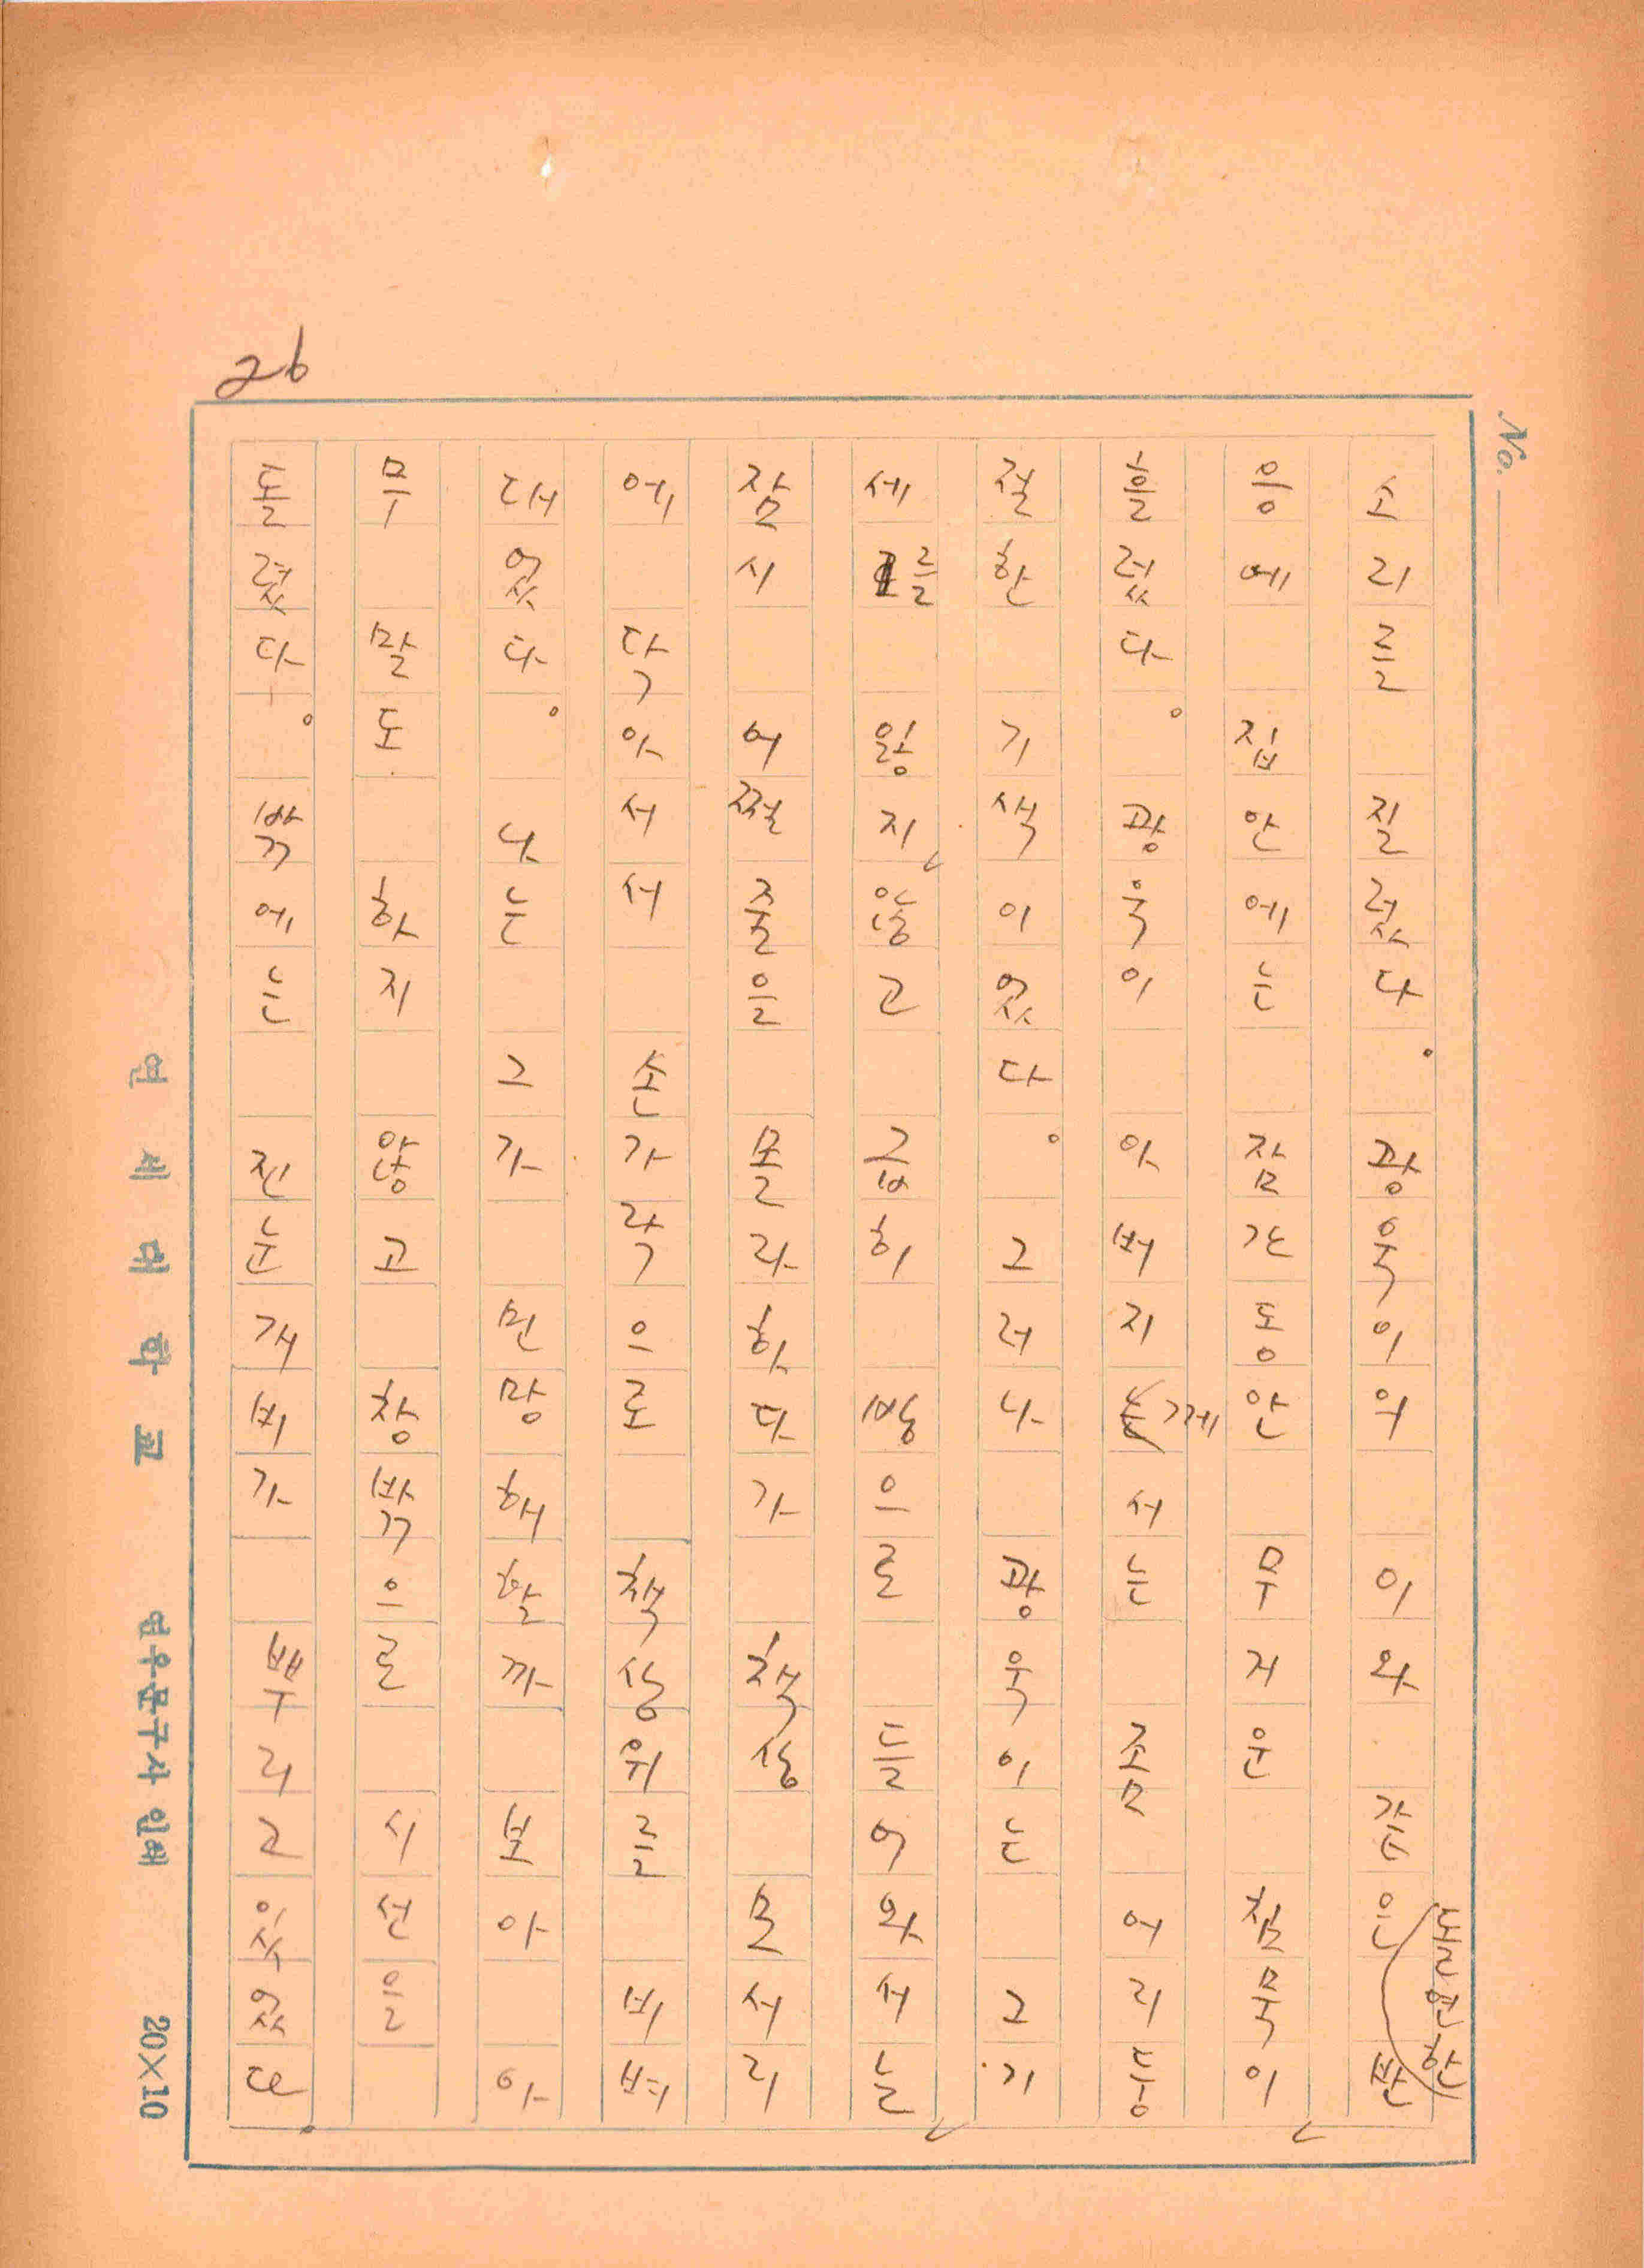 No.
26
소리를 질렀다. 광욱이의 이와 같은 반
응에 집안에는 잠간동안 무거운 침묵이
흘렀다. 광욱이 아버지께서는 좀 어리둥
절한 기색이었다. 그러나 광욱이는 그 기
세를 잃지 않고 급히 방으로 들어와서는
잠시 어쩔 줄을 몰라하다가 책상 모서리
에 닥아서서 손가락으로 책상위를 비벼
대었다. 나는 그가 민망해할까 보아 아
무 말도 하지 않고 창밖으로 시선을
돌렸다. 밖에는 진눈개비가 뿌리고 있었다
연세대학교 연우문구사 인쇄 20×10